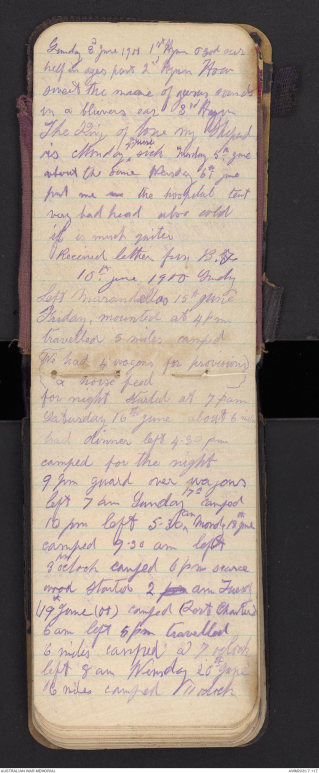 Sunday 3rd June 1900 1st Hymn O God our
help in ages past 2nd Hymn How
sweet the name of Jesus sounds
in a believers ear 3rd Hymn
The King of love my Shepherd
is Monday 4th June sick Tuesday 5th June
about the same Wensday 6th June
put me in the hospital tent
very bad head also cold
it is much quiter
Received letter from B.
10th June 1900 Sundy
Left Marandellas 15th June
Friday, mounted at 4 pm
travelled 6 miles camped
We had 4 wagons for provisions
& horse feed
for night started at 7 am
Saturday 16th June about 6 miles
had dinner left 4-30 pm
camped for the night
9 pm guard over wagons
left 7 am Sunday 17th camped
10 pm left 5-30 am Monday 18th June
camped 9-30 am left
oclock camped 6 pm scarce
wood started 2 am Tuesd
19th June (01) camped Fort Charter
6 am left 5 pm travelled
6 miles camped at 7 oclock
left 8 am Wensday 20th June
16 miles camped 11 oclock
AUSTRALIAN WAR MEMORIAL